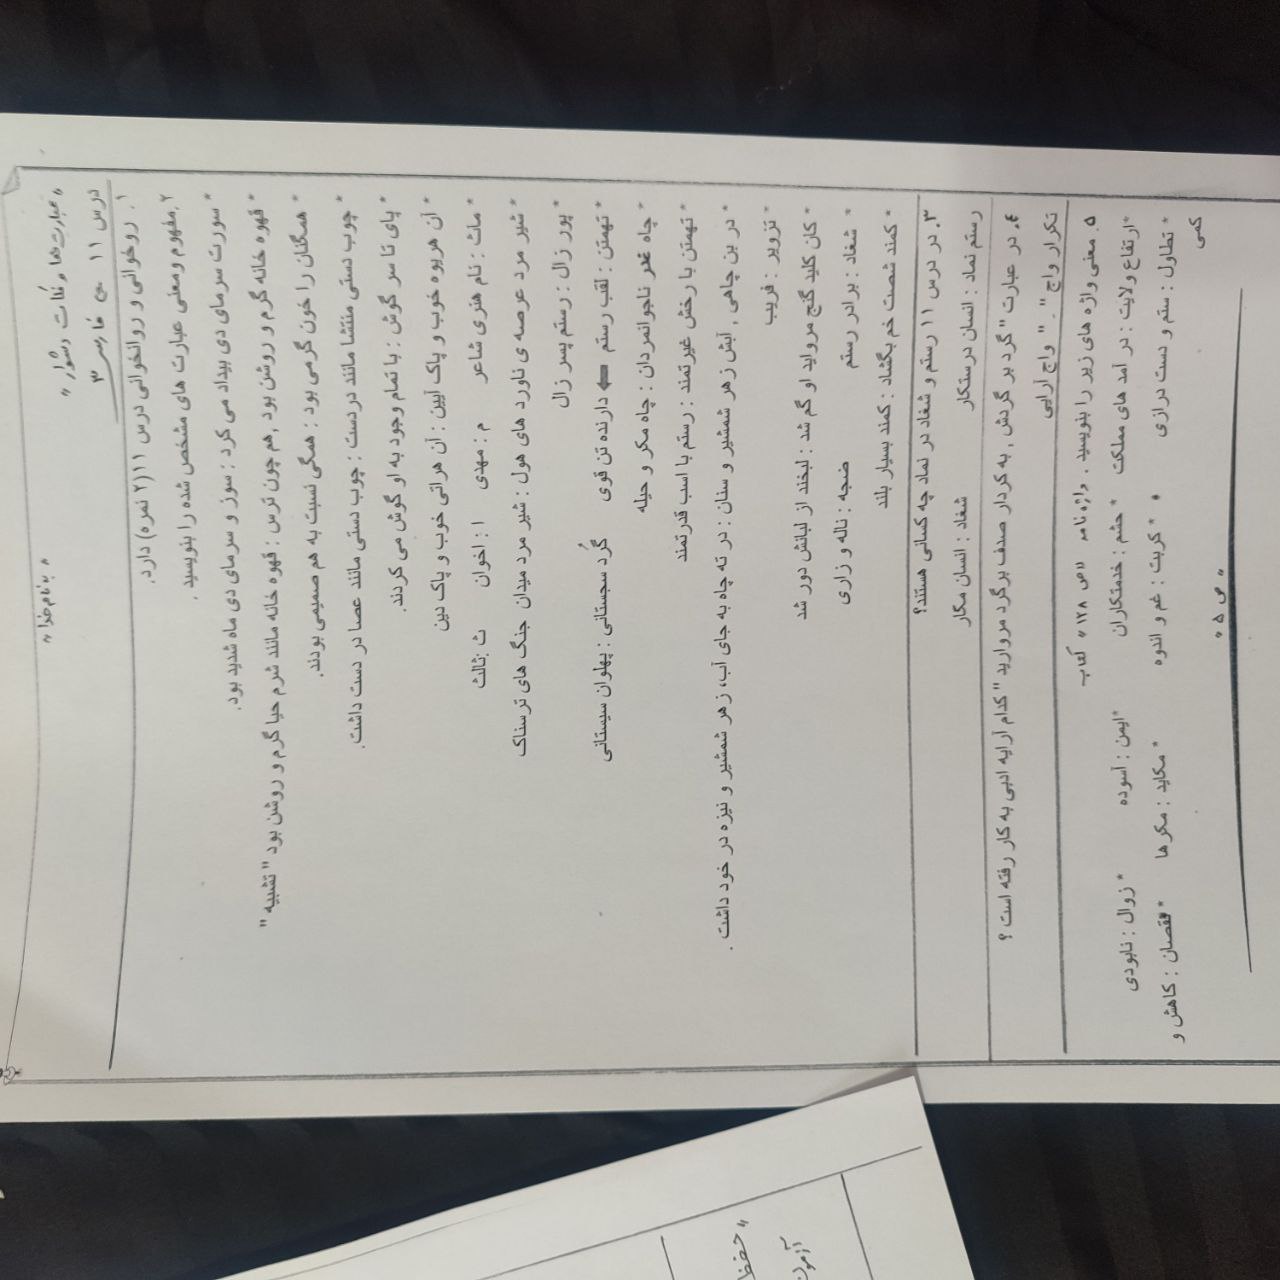 « به نام خدا »
« عبارت ها و نکات دشوار »
درس ۱۱ فارسی ۳
۱. روخوانی و روانخوانی درس ۱۱(۲ نمره) دارد.
۲.مفهوم ومعنی عبارت های مشخص شده را بنویسید .
* سورت سرمای دی بیداد می کرد : سوز و سرمای دی ماه شدید بود.
* قهوه خانه گرم و روشن بود ,هم چون ترس : قهوه خانه مانند شرم حیا گرم و روشن بود " تشبیه "
* همگنان را خون گرمی بود : همگی نسبت به هم صمیمی بودند.
* چوب دستی منتشا مانند دردست : چوب دستی مانند عصا در دست داشت.
* پای تا سر گوش : با تمام وجود به او گوش می کردند.
* آن هریوه خوب و پاک آیین : آن هراتی خوب و پاک دین
* ماث : نام هنری شاعر م : مهدی ا : اخوان ث :ثالث
* شیر مرد عرصه ی ناورد های هول : شیر مرد میدان جنگ های ترسناک
* پور زال : رستم پسر زال
* تهمتن : لقب رستم ⬅ دارنده تن قوی گُرد سجستانی : پهلوان سیستانی
* چاه غدر ناجوانمردان : چاه مکر و حیله
* تهمتن با رخش غیرتمند : رستم با اسب قدرتمند
* در بن چاهی , آبش زهر شمشیر و سنان : در ته چاه به جای آب، زهر شمشیر و نیزه در خود داشت .
* تزویر : فریب
* کان کلید گنج مروارید او گم شد : لبخند از لبانش دور شد
* شغاد : برادر رستم ضجه : ناله و زاری
* کمند شصت خم بگشاد : کمند بسیار بلند
۳. در درس ۱۱ رستم و شغاد در نماد چه کسانی هستند؟
رستم نماد : انسان درستکار شغاد : انسان مکار
۴. در عبارت " گرد بر گردش , به کردار صدف برگرد مروارید " کدام آرایه ادبی به کار رفته است ؟
تکرار واج " . " واج آرایی
۵. معنی واژه های زیر را بنویسید . واژه نامه «ص ۱۲۸ » کتاب
*ارتفاع ولایت : در آمد های مملکت * حشم : خدمتکاران *ایمن : آسوده * زوال : نابودی
* تطاول : ستم و دست درازی * کربت : غم و اندوه * مکاید : مکر ها * نقصان : کاهش و
کمی
« ص ۵ »